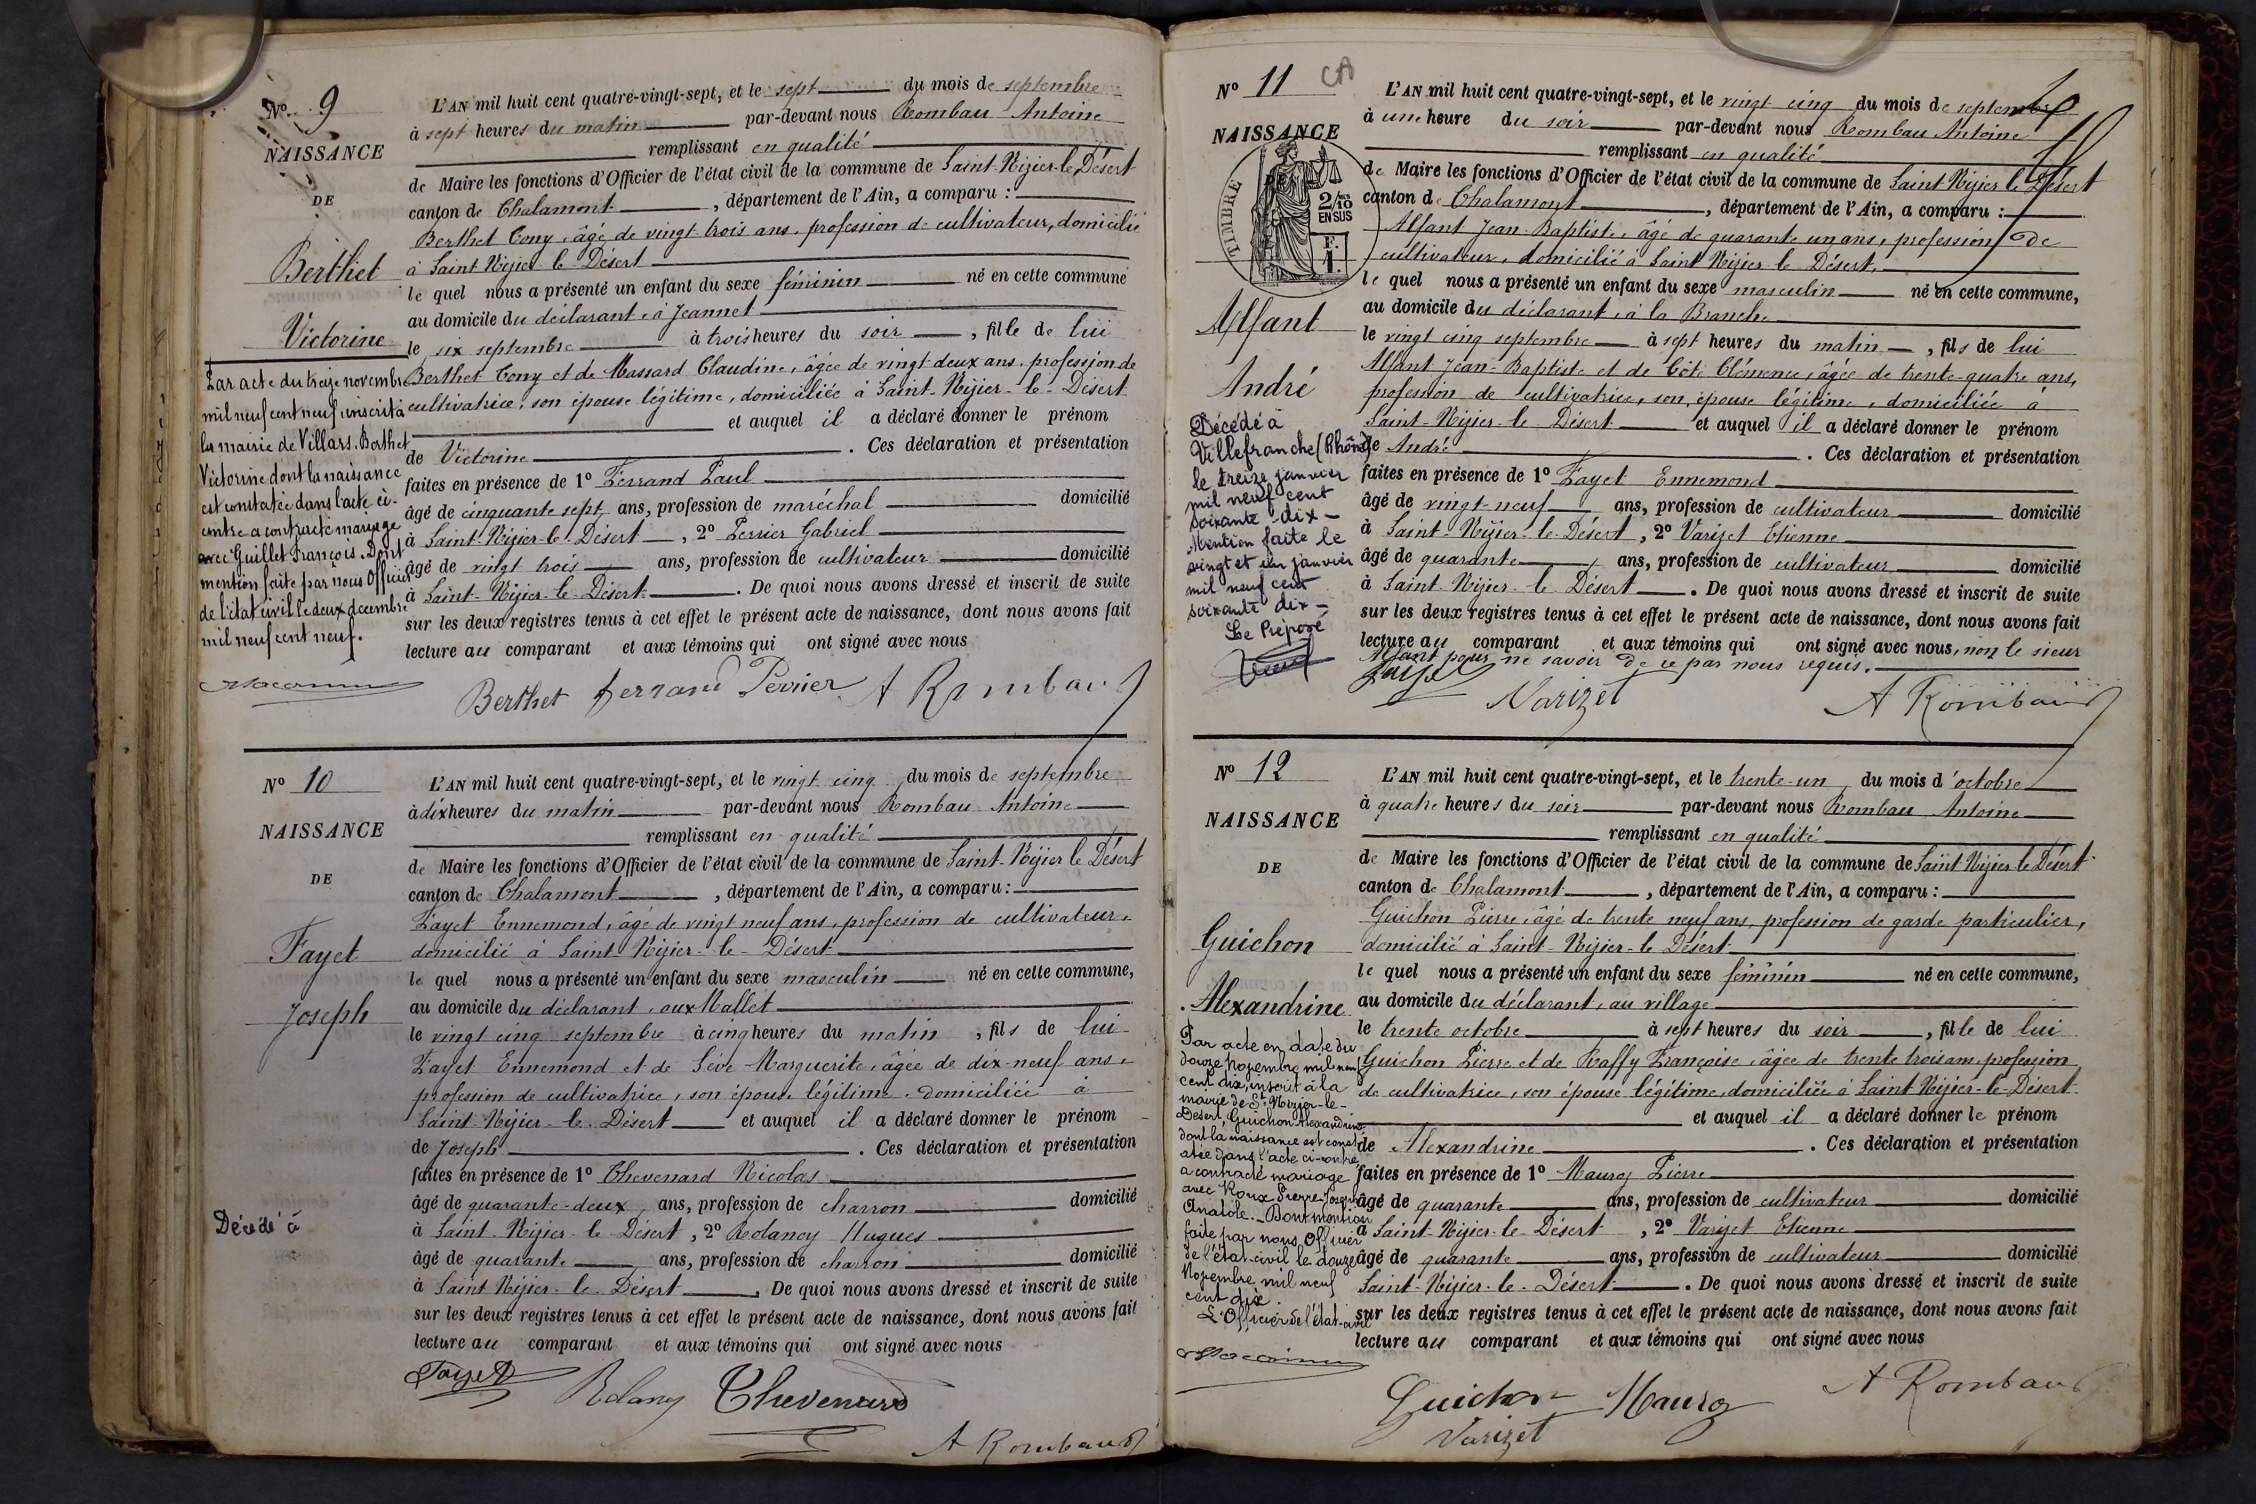 Nº 9
NAISSANCE
DE
Berthet
Victorine
Par acte du treize novembre
mil neuf cent neuf, inscrit à
la mairie de Villars. Berthet
Victorine dont la naissance
est constatée dans l'acte ci-
contre a contracté mariage
avec Guillet François. Dont
mention faite par nous Officier
de l'état civil le deux décembre
mil neuf cent neuf.
L'AN mil huit cent quatre-vingt-sept, et le sept du mois de septembre
à sept heures du matin par-devant nous Rombau Antoine
remplissant en qualité
de Maire les fonctions d'Officier de l'état civil de la commune de Saint-Nizier-le-Désert
canton de Chalamont, département de l'Ain, a comparu :
Berthet Tony, âgé de vingt trois ans, profession de cultivateur, domicilié
à Saint Nizier le Désert
le quel nous a présenté un enfant du sexe féminin né en cette commune
au domicile du déclarant, à Jeannet
le six septembre à trois heures du soir, fille de lui
Berthet Tony et de Massard Claudine, âgée de vingt-deux ans, profession de
cultivatrice, son épouse légitime, domiciliée à Saint-Nizier-le-Désert
et auquel il a déclaré donner le prénom
de Victorine. Ces déclaration et présentation
faites en présence de 1º Ferrand Paul
âgé de cinquante sept ans, profession de maréchal domicilié
à Saint-Nizier-le-Désert, 2º Perrier Gabriel
âgé de vingt trois ans, profession de cultivateur domicilié
à Saint-Nizier-le-Désert. De quoi nous avons dressé et inscrit de suite
sur les deux registres tenus à cet effet le présent acte de naissance, dont nous avons fait
lecture au comparant et aux témoins qui ont signé avec nous
Berthet Ferrand Perrier A Rombaud
Nº 10
NAISSANCE
DE
Fayet
Joseph
Décédé à
L'AN mil huit cent quatre-vingt-sept, et le vingt cinq du mois de septembre
à dix heures du matin par-devant nous Rombau Antoine
remplissant en qualité
de Maire les fonctions d'Officier de l'état civil de la commune de Saint-Nizier le Désert
canton de Chalamont, département de l'Ain, a comparu :
Fayet Ennemond, âgé de vingt neuf ans, profession de cultivateur,
domicilié à Saint Nizier-le-Désert
le quel nous a présenté un enfant du sexe masculin né en cette commune,
au domicile du déclarant, aux Mallet
le vingt cinq septembre à cinq heures du matin, fils de lui
Fayet Ennemond et de Sève Marguerite, âgée de dix-neuf ans,
profession de cultivatrice, son épouse légitime, domiciliée à
Saint-Nizier-le-Désert et auquel il a déclaré donner le prénom
de Joseph. Ces déclaration et présentation
faites en présence de 1º Thevenard Nicolas
âgé de quarante-deux ans, profession de charron domicilié
à Saint-Nizier-le-Désert, 2º Rolancy Hugues
âgé de quarante ans, profession de charron domicilié
à Saint Nizier-le-Désert. De quoi nous avons dressé et inscrit de suite
sur les deux registres tenus à cet effet le présent acte de naissance, dont nous avons fait
lecture au comparant et aux témoins qui ont signé avec nous
Fayet Rolancy Thevenard
A Rombaud
Nº 11 CA
NAISSANCE
DE
TIMBRE
2/10
EN SUS
F.
1.
Alfant
André
Décédé à
Villefranche (Rhône)
le treize janvier
mil neuf cent
soixante-dix -
Mention faite le
vingt et un janvier
mil neuf cent
soixante dix -
Le Préposé
L'AN mil huit cent quatre-vingt-sept, et le vingt cinq du mois de septembre
à une heure du soir par-devant nous Rombau Antoine
remplissant en qualité
de Maire les fonctions d'Officier de l'état civil de la commune de Saint Nizier le Désert
canton de Chalamont, département de l'Ain, a comparu :
Alfant Jean-Baptiste, âgé de quarante un ans, profession de
cultivateur, domicilié à Saint Nizier le Désert,
le quel nous a présenté un enfant du sexe masculin né en cette commune,
au domicile du déclarant, à la Branche
le vingt cinq septembre à sept heures du matin, fils de lui
Alfant Jean-Baptiste et de Côte Clémence, âgée de trente-quatre ans,
profession de cultivatrice, son épouse légitime, domiciliée à
Saint-Nizier-le Désert et auquel il a déclaré donner le prénom
de André. Ces déclaration et présentation
faites en présence de 1º Fayet Ennemond
âgé de vingt-neuf ans, profession de cultivateur domicilié
à Saint-Nizier-le-Désert, 2º Varizet Etienne
âgé de quarante ans, profession de cultivateur domicilié
à Saint-Nizier-le Désert. De quoi nous avons dressé et inscrit de suite
sur les deux registres tenus à cet effet le présent acte de naissance, dont nous avons fait
lecture au comparant et aux témoins qui ont signé avec nous, non le sieur
Alfant pour ne savoir de ce par nous requis.
Fayet Varizet A Rombaud
Nº 12
NAISSANCE
DE
Guichon
Alexandrine
Par acte en date du
douze Novembre mil neuf
cent dix, inscrit à la
mairie de St Nizier-le-
Désert, Guichon Alexandrine
dont la naissance est const-
atée dans l'acte ci-contre
a contracté mariage
avec Roux Pierre Joseph
Anatole. - Dont mention
faite par nous, Officier
de l'état-civil le douze
Novembre mil neuf
cent dix.
L'Officier de l'état-civil
L'AN mil huit cent quatre-vingt-sept, et le trente-un du mois d'octobre
à quatre heures du soir par-devant nous Rombau Antoine
remplissant en qualité
de Maire les fonctions d'Officier de l'état civil de la commune de Saint Nizier le Désert
canton de Chalamont, département de l'Ain, a comparu :
Guichon Pierre, âgé de trente neuf ans, profession de garde particulier,
domicilié à Saint-Nizier-le Désert
le quel nous a présenté un enfant du sexe féminin né en cette commune,
au domicile du déclarant, au village
le trente octobre à sept heures du soir, fille de lui
Guichon Pierre et de Raffy Françoise, âgée de trente trois ans, profession
de cultivatrice, son épouse légitime, domiciliée à Saint Nizier-le-Désert
et auquel il a déclaré donner le prénom
de Alexandrine. Ces déclaration et présentation
faites en présence de 1º Mauroz Pierre
âgé de quarante ans, profession de cultivateur domicilié
à Saint-Nizier-le-Désert, 2º Varizet Etienne
âgé de quarante ans, profession de cultivateur domicilié
Saint-Nizier-le-Désert. De quoi nous avons dressé et inscrit de suite
sur les deux registres tenus à cet effet le présent acte de naissance, dont nous avons fait
lecture au comparant et aux témoins qui ont signé avec nous
Guichon Mauroz A Rombaud
Varizet